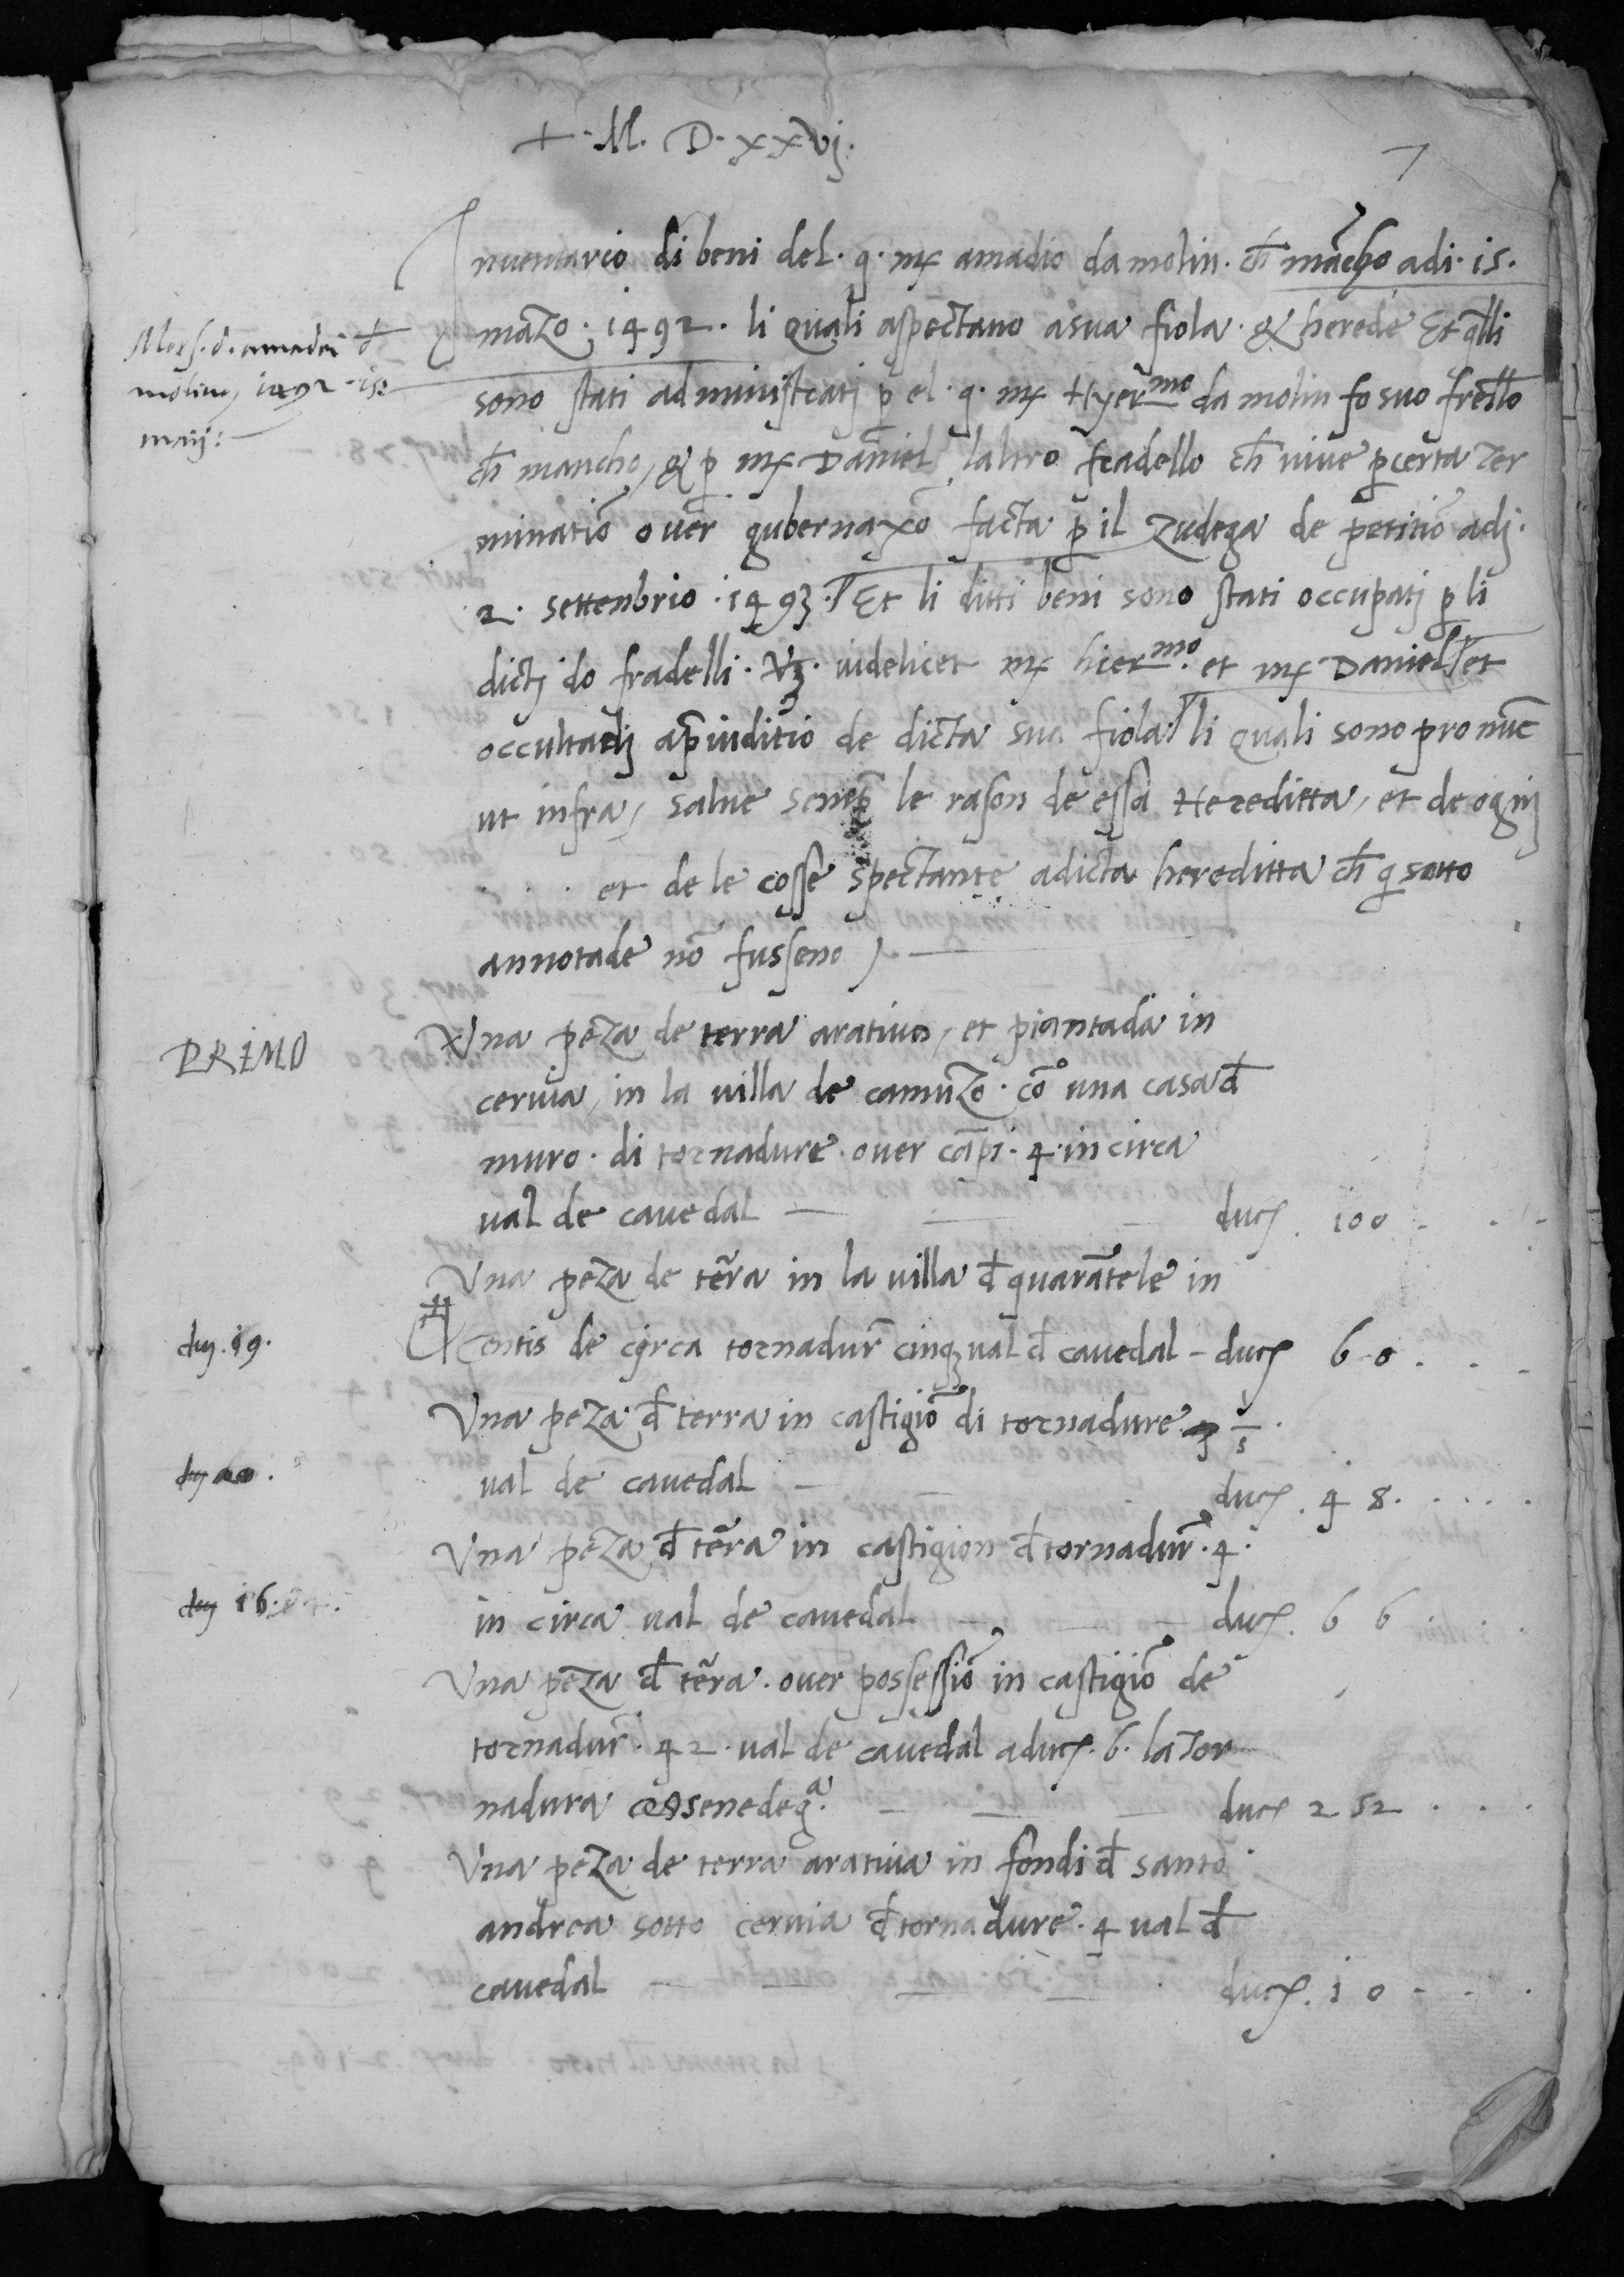 + · M · D · xxvj ·
7
Inventario di beni del · q · mx amadio da molin · ch mancho adi · is ·
mazo · 1492 · li quali aspectano a sua fiola · & herede Et qlli
Mors · d · amadei d
molino 1492 · is ·
maij :
sono stati administratj p el · q · mx Hyermo da molin fo suo frello
ch mancho, & p mx Daniel laltro fradello ch vive p certa ter
minatio over gubernaxo facta p il Zudega de petitio adj ·
2 · settenbrio · 1493 · Et li ditti beni sono stati occupatj p li
dictj do fradelli · Vz · videlicet mx hiermo · et mx Daniel et
occultadj a piuditio de dicta sua fiola li quali sono pro nuc
ut infra, salve semp le rason de essa Hereditta, et de ognj
et de le cosse spectante adicta hereditta ch q sotto
annotade no fusseno )
PRIMO
Una peza de terra arativa, et piantada in
cervia, in la villa de camuzo · co una casa d
muro · di tornadure · over capi · 4 · in circa
val de cavedal — ducx · 100 ·
Una peza de terra in la villa d quarantele in
dux · 19 ·
contis de circa tornadur cinqz val d cavedal - ducx 60 ·
Una peza d terra in castigio di tornadure 3
val de cavedal — ducx · 48 ·
Una peza d terra in castigion d tornadur · 4 ·
dux 16 ·
in circa val de cavedal — ducx · 66
Una peza d terra · over possessio in castigio de
tornadur · 42 · val de cavedal a ducx · 6 · la tor
nadura — ducx 252 ·
Una peza de terra arativa in fondi d santo
andrea sotto cervia d tornadure · 4 val d
cavedal — ducx · 10 ·